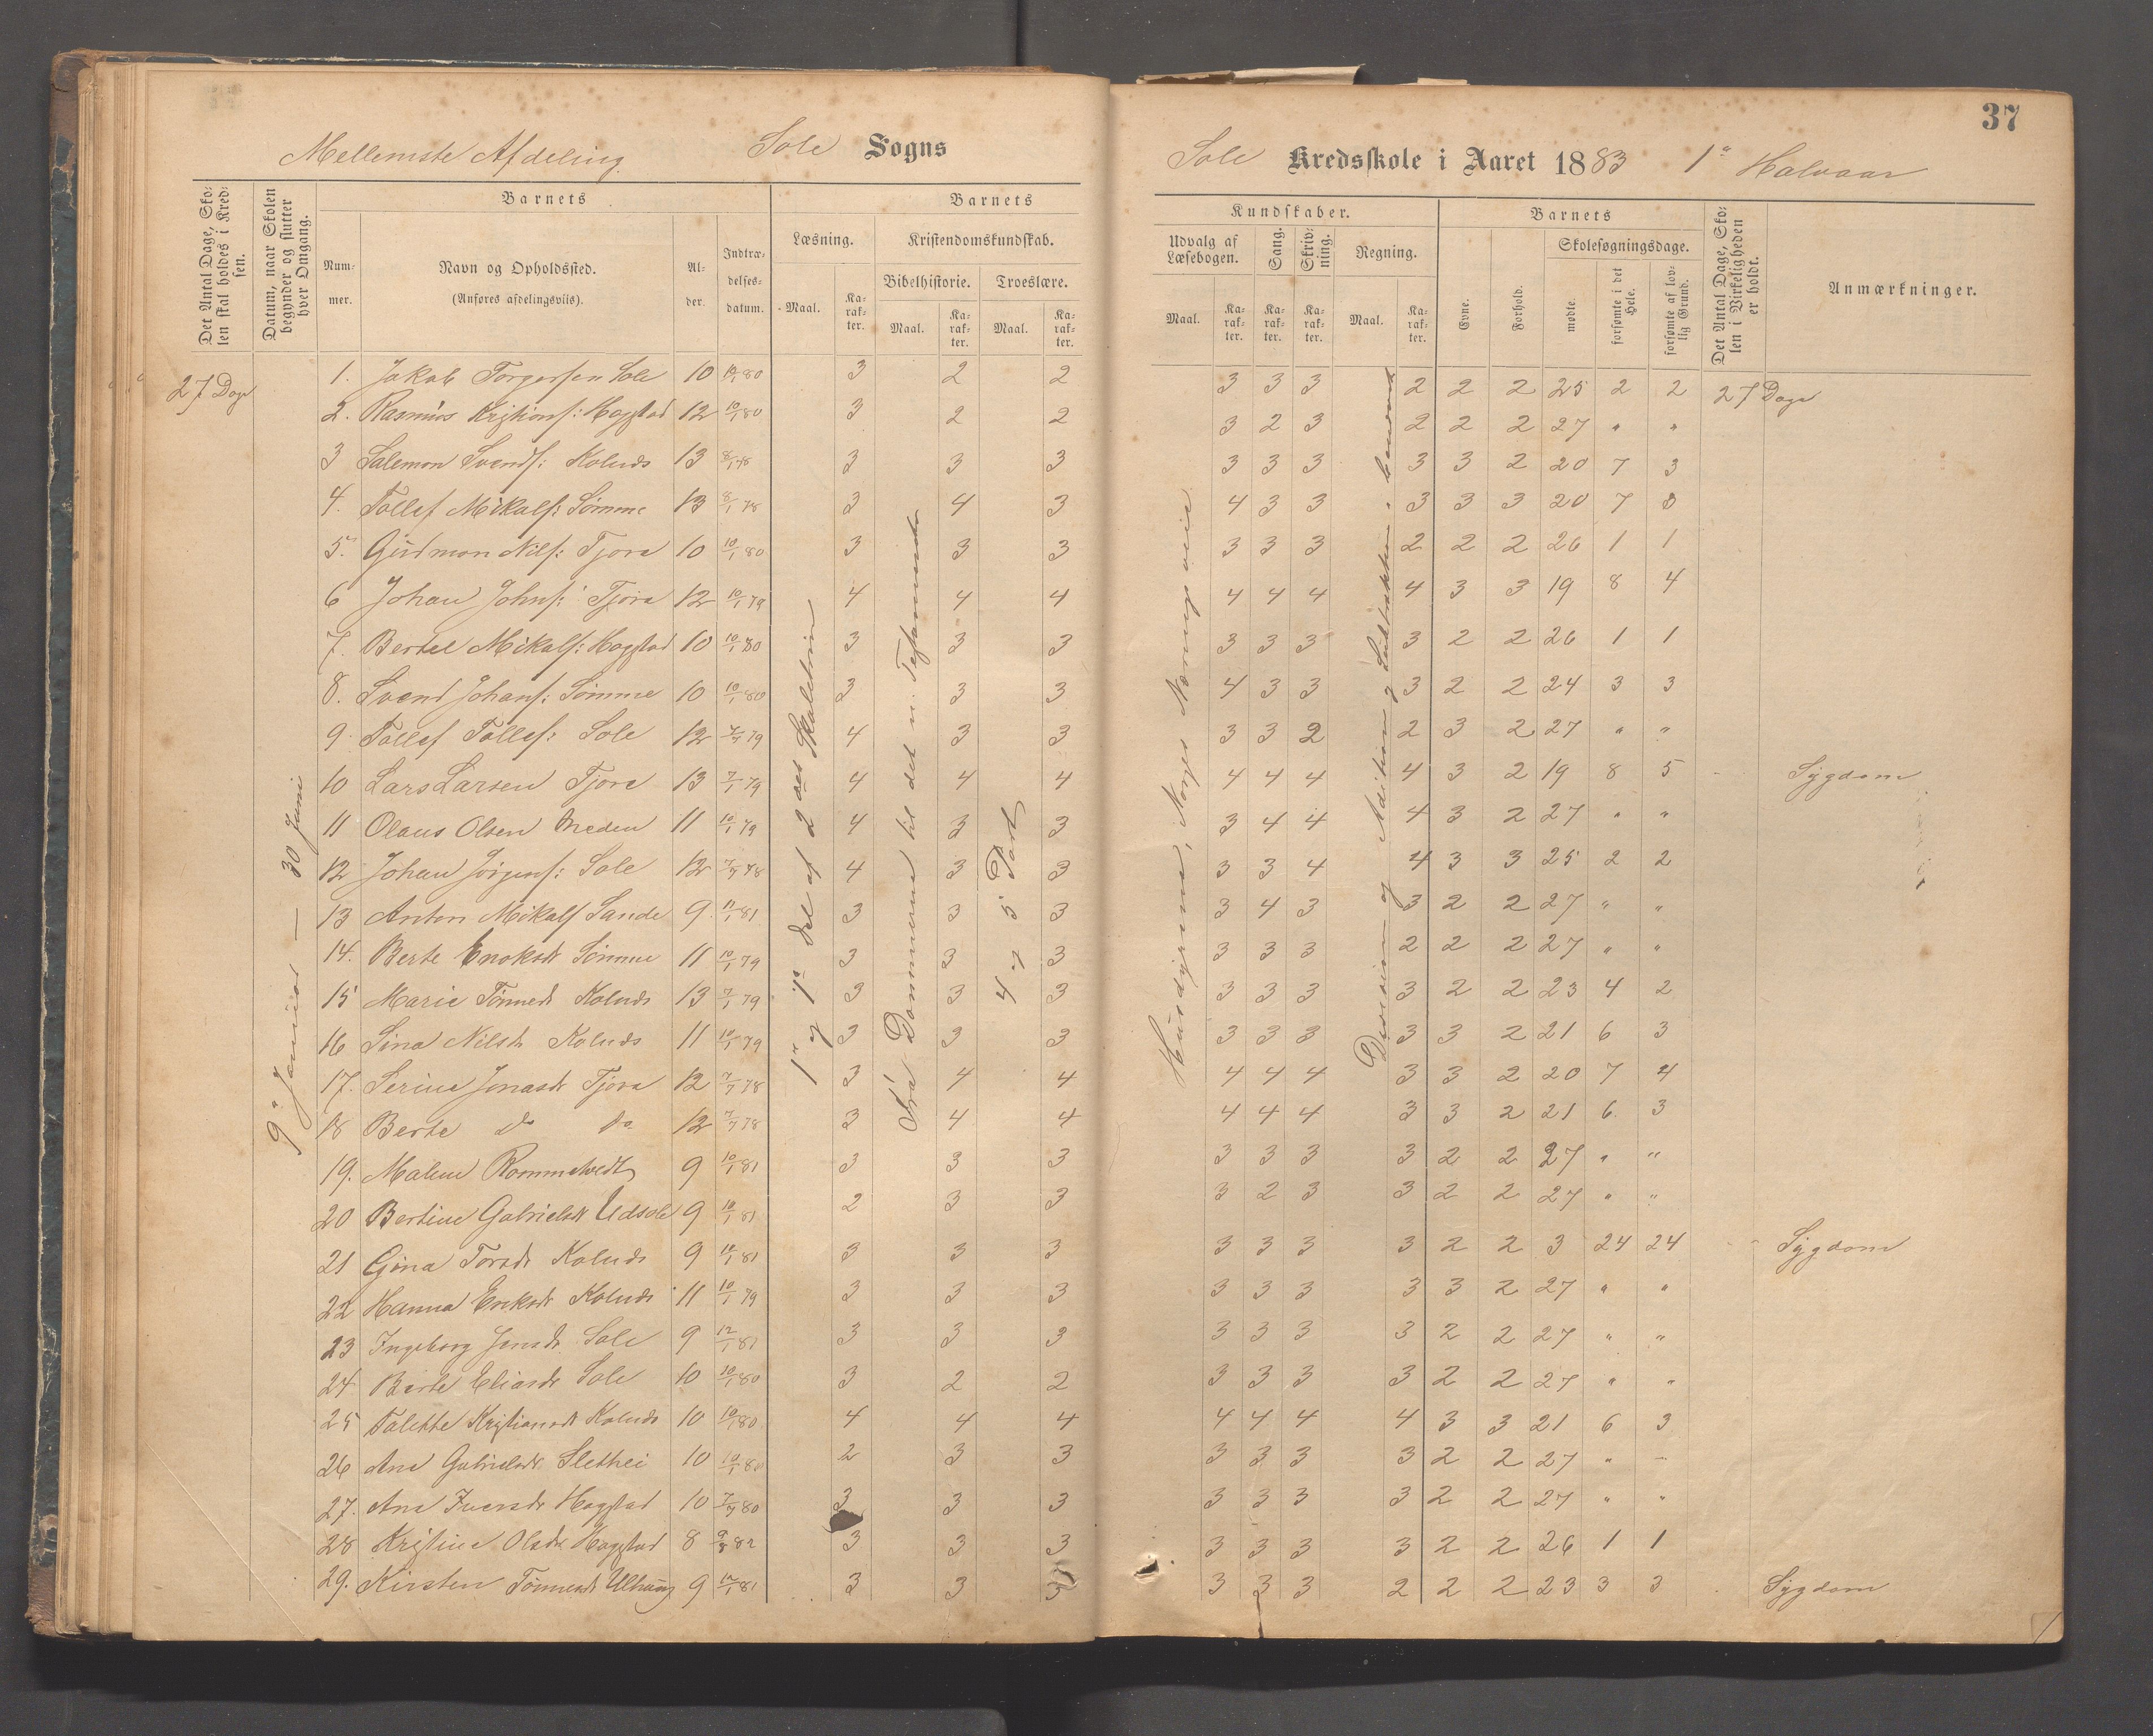 37
Mellemste Afdeling. Sole Sogns
Sole Kredsskole i Aaret 1883 1ste Halvaar
Det Antal Dage, Skolen skal holdes i Kredsen.
Datum, naar Skolen begynder og slutter hver Omgang.
Barnets
Nummer.
Navn og Opholdssted.
(Anføres afdelingsviis).
Alder.
Indtrædelsesdatum.
Barnets
Læsning.
Maal.
Karakter.
Kristendomskundskab.
Bibelhistorie.
Maal.
Karakter.
Troeslære.
Maal.
Karakter.
Kundskaber.
Udvalg af Læsebogen.
Maal.
Karakter.
Sang.
Karakter.
Skrivning.
Karakter.
Regning.
Maal.
Karakter.
Barnets
Evne.
Forhold.
Skolesøgningsdage.
mødte.
forsømte i det Hele.
forsømte af lovlig Grund.
Det Antal Dage, Skolen i Virkeligheden er holdt.
Anmærkninger.
27 Dage
9de Januar — 30 Juni
1ste og 1ste Del af 2det Skoletrin
Fra Dommerne til det n. Testamente
4 og 5 Part
Husdyrene, Norges Næringsveie
Division og Addition og Subtraktion i benævnt
1. Jakob Torgersen Sole 10 10/1 80 3 2 2 3 3 3 2 2 2 25 2 2 27 Dage
2. Rasmus Kristians: Hagstad 12 10/1 80 3 2 2 3 2 3 2 2 2 27 " "
3 Salemon Svends: Kolnds 13 8/1 78 3 3 3 3 3 3 3 3 2 20 7 3
4. Tollef Mikals: Sømme 13 8/1 78 3 4 3 4 3 3 3 3 3 20 7 3
5. Gudmon Nils: Tjora 10 10/1 80 3 3 3 3 3 3 2 2 2 26 1 1
6 Johan Johns: Tjora 12 10/1 79 4 4 4 4 4 4 4 3 3 19 8 4
7. Bertel Mikals: Hagstad 10 10/1 80 3 3 3 3 3 3 3 2 2 26 1 1
8. Svend Johans: Sømme 10 10/1 80 3 3 3 4 3 3 3 2 2 24 3 3
9 Tollef Tollefs: Sole 12 7/7 79 4 3 3 3 3 2 2 3 2 27 " "
10 Lars Larsen Tjora 13 7/1 79 4 4 4 4 4 4 4 3 2 19 8 5 Sygdom
11 Olaus Olsen Kneden 11 10/1 79 4 3 3 3 4 4 4 3 2 27 " "
12 Johan Jørgens: Sole 12 7/7 78 4 3 3 3 3 4 4 3 3 25 2 2
13 Anton Mikals Sande 9 11/1 81 3 3 3 3 4 3 3 2 2 27 " "
14. Berte Enoksdr Sømme 11 10/1 79 3 3 3 3 3 3 2 2 2 27 " "
15 Marie Tønnesdr Kolnds 13 7/1 79 3 3 3 3 3 3 3 2 2 23 4 2
16 Sina Nilsdr Kolnds 11 10/1 79 3 3 3 3 3 3 3 3 2 21 6 3
17. Serine Jonasdr Tjora 12 7/7 78 3 4 4 4 4 4 3 3 2 20 7 4
18 Berte do do 12 7/7 78 3 4 4 4 4 4 3 3 2 21 6 3
19. Malene Rommetvedt 9 10/1 81 3 3 3 3 3 3 3 2 2 27 " "
20 Bertine Gabrielsdr Udsole 9 10/1 81 2 3 3 3 2 3 3 2 2 27 " "
21 Gina Torsdr Kolnds 9 10/1 81 3 3 3 3 3 3 3 2 2 3 24 24 Sygdom
22 Hanna Eriksdr Kolnds 11 10/1 79 3 3 3 3 3 3 3 3 2 27 " "
23 Ingeborg Jensdr Sole 9 12/1 81 3 3 3 3 3 3 3 2 2 27 " "
24 Berte Eliasdr Sole 10 10/1 80 3 2 2 3 3 3 3 2 2 27 " "
25 Talette Kristiansdr Kolnds 10 10/1 80 4 4 4 4 4 4 4 3 3 21 6 3
26 Ane Gabrielsdr Slethei 10 10/1 80 2 3 3 3 3 3 3 2 2 27 " "
27. Ane Iversdr Hagstad 10 7/7 80 3 3 3 3 3 3 3 2 2 27 " "
28 Kristine Olsdr Hagstad 8 9/8 82 3 3 3 3 3 3 3 2 2 26 1 1
29. Kirsten Tønnesdr Ulhaug 9 12/1 81 3 3 3 3 3 3 2 2 2 23 3 3 Sygdom